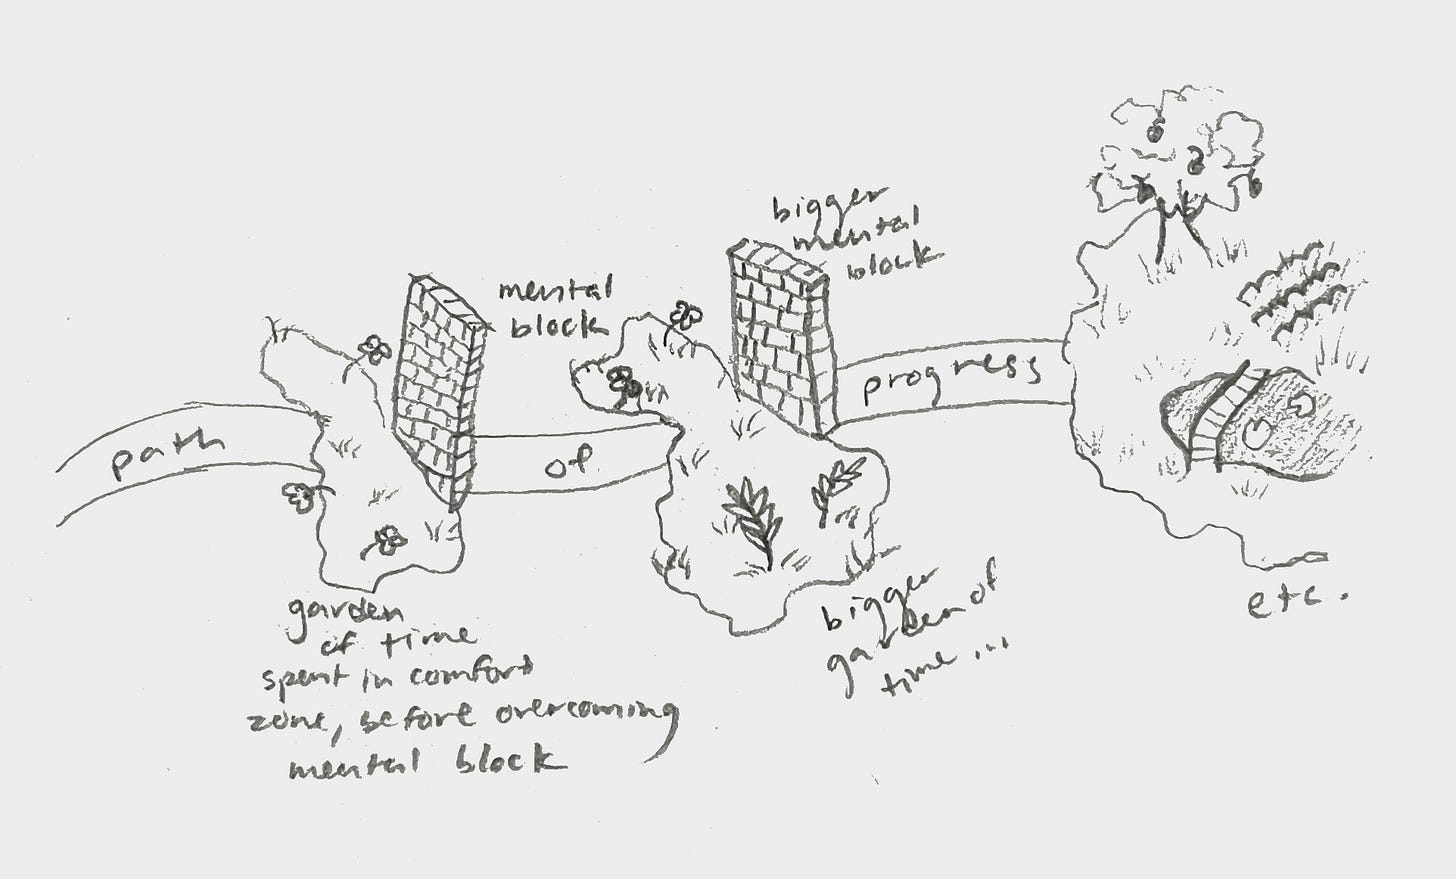 path
of
progress
mental
block
bigger
mental
block
garden
of time
spent in comfort
zone, before overcoming
mental block
bigger
garden of
time...
etc.